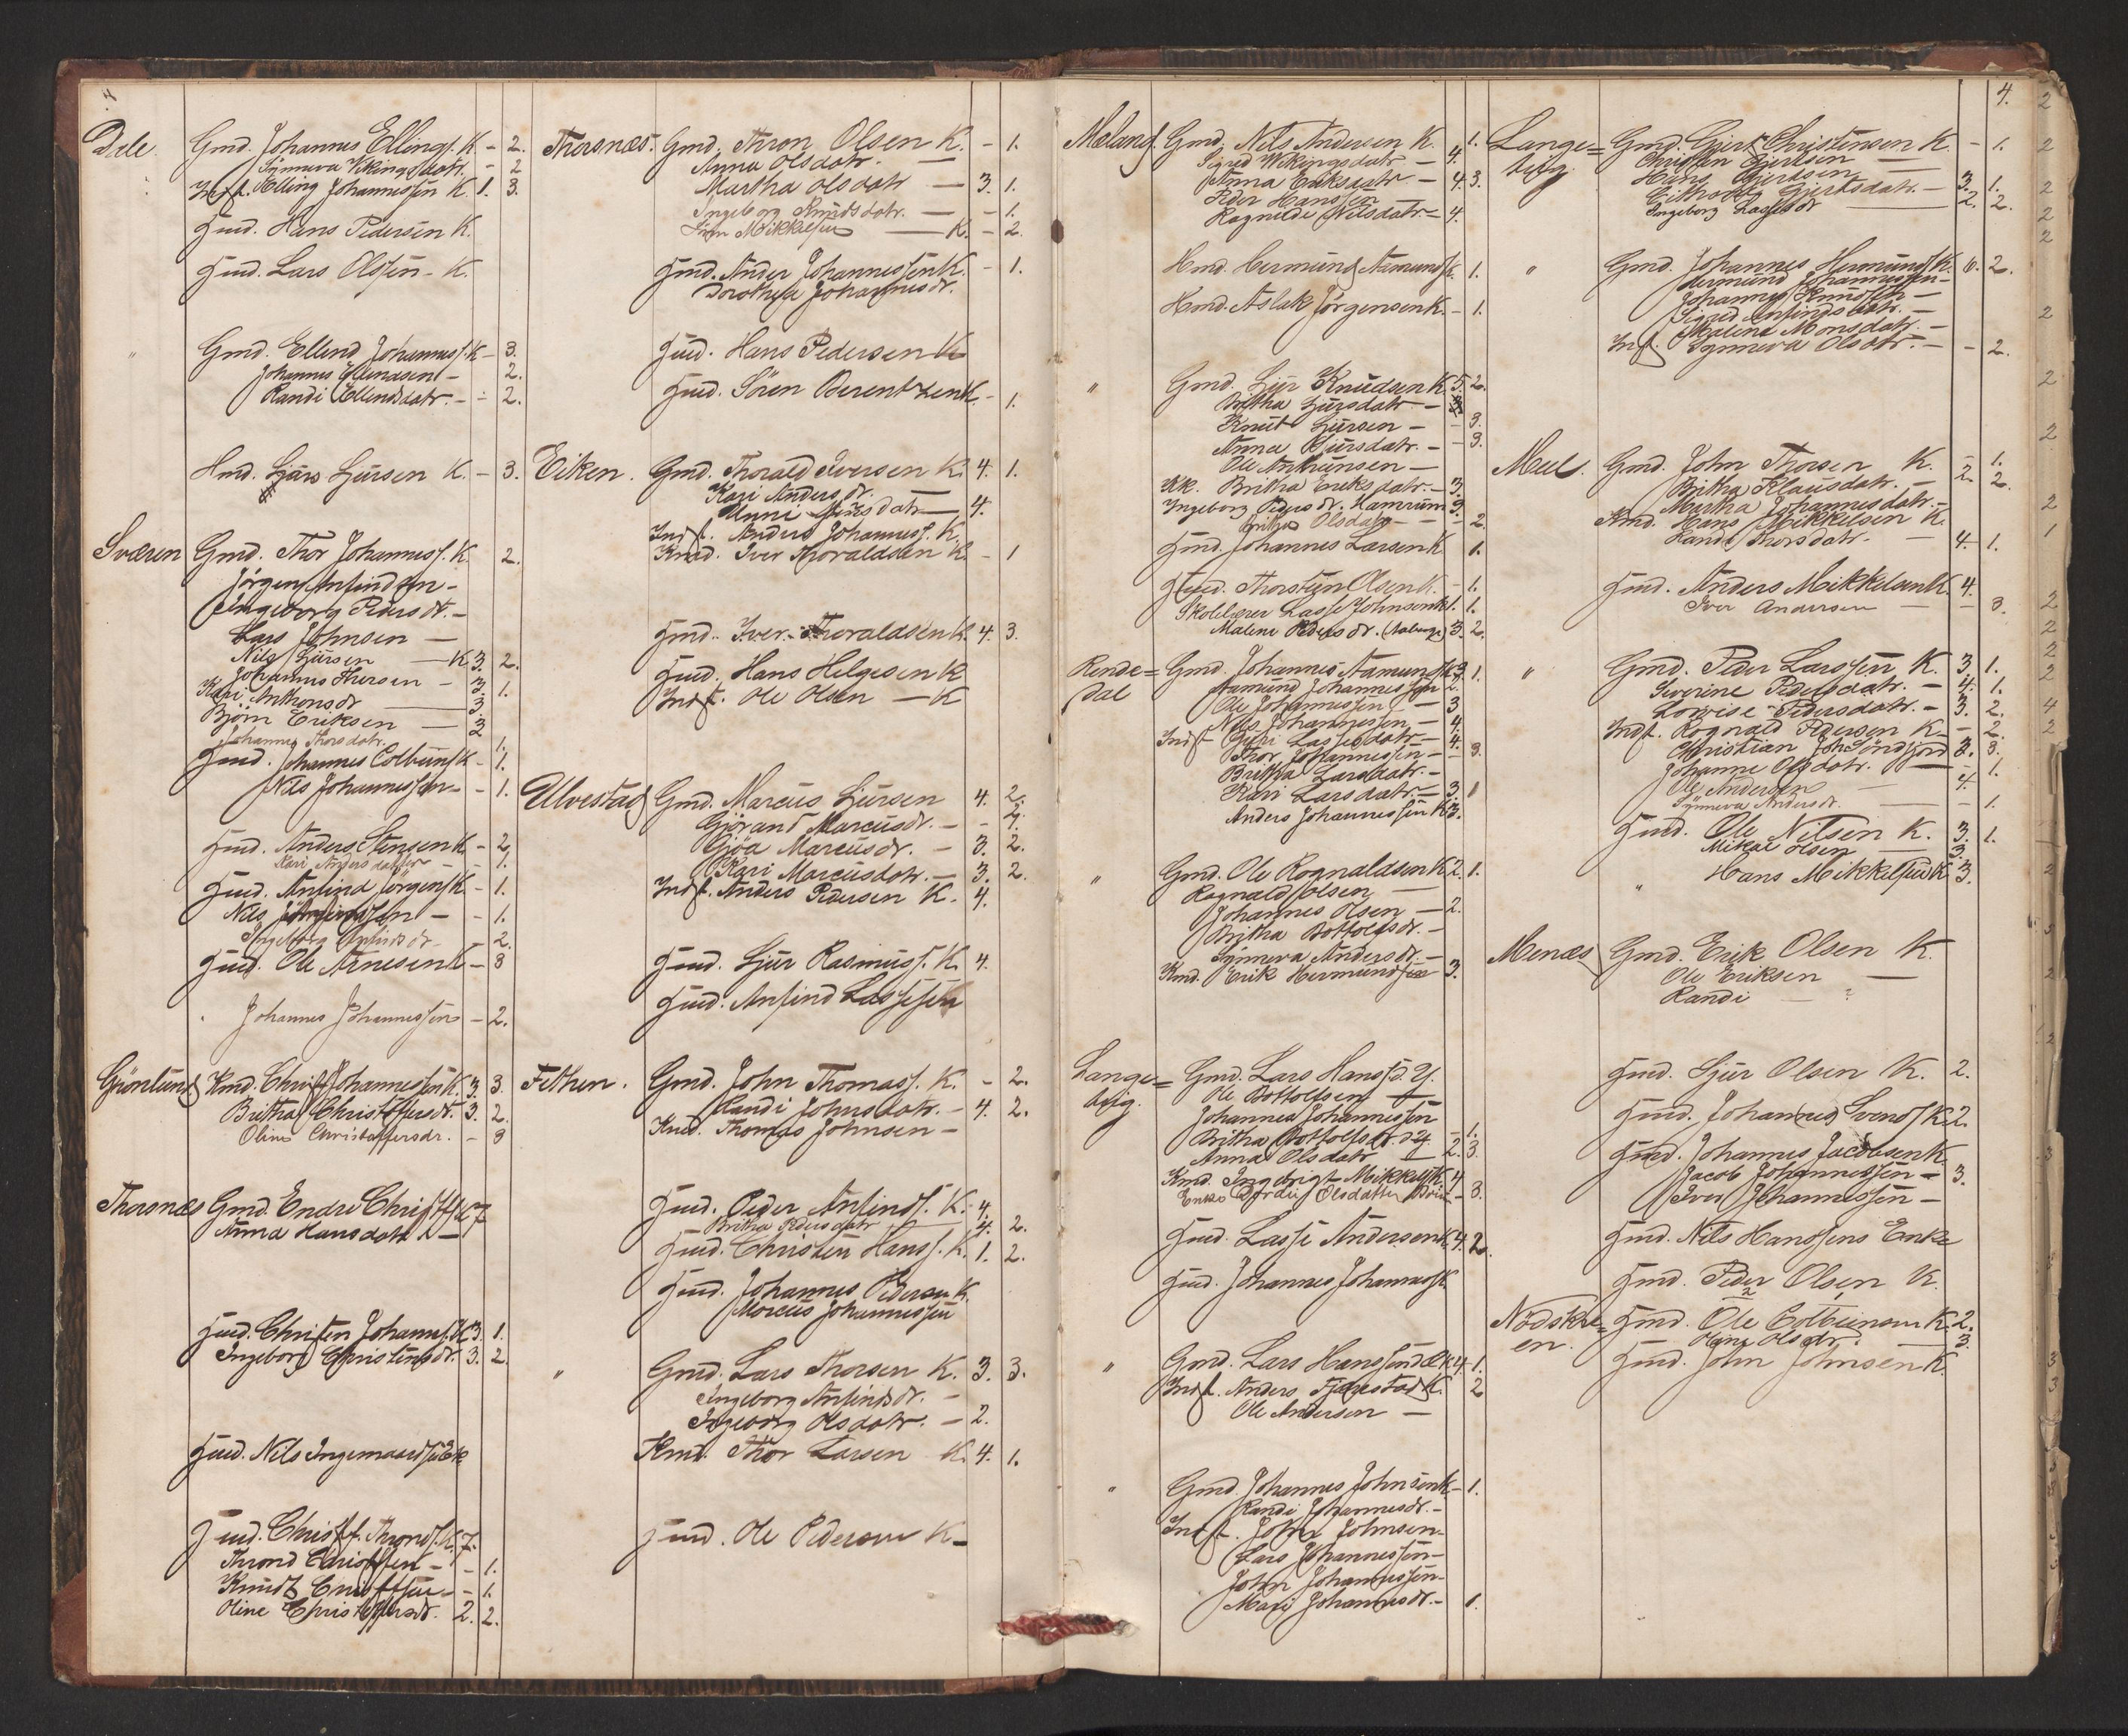 4
Dale. Gmd. Johannes Ellings. K - 2.
Synneva Vikingsdatr. - 2
Indst. Elling Johannessen K. 1. 3.
Hmd. Hans Pedersen K.
Hmd. Lars Olssen - K.
" Gmd. Ellend Johanness. K - 3.
Johannes Ellendsen - 2.
Randi Ellendsdatr. - - 2.
Hmd. Sjurs Sjursen K. - 3.
Sværen Gmd. Thor Johanness. K. 2.
Jørgen Anfindsen -
Ingeborg Pedersdr. -
Lars Johnsen -
Nils Sjursen - K 3. 2.
Johannes Thorsen - 3. 1.
Kari Anthonsdr - 3
Bjørn Eriksen - 3
Johannes Thorsdatr. 2 1.
Hmd. Johannes Colbeins K - 1.
Nils Johannessen - - 1.
Hmd. Anders Stensen K - 2
Kari Andersdatter - - 1.
Hmd. Anfind Jørgens K - 1.
Nils Anfindssen - - 1.
Ingeborg Anfindsdr - 2.
Hmd. Ole Arnesen K - 3
Johannes Johannessen - 2.
Grønlund Kmd. Christ. Johannessen K. 3 3
Britha Christoffersdr. 3. 2.
Oline Christoffersdr. - 3
Thorsnæs Gmd. Endre Christoff. K 7
Anna Hansdatr -
Hmd. Christen Johanns. K 3. 1.
Ingeborg Christensdr. 3. 2.
Hmd. Nils Ingemardsen K
Hmd. Christoff. Thronds. K. 7.
Thrond Christoffsen - - 1.
Knudt Christoffsen - - 1.
Oline Christoffersdr. 2. 2.
Thorsnæs. Gmd. Thron Olsen K. - 1.
Anna Olsdatr. -
Martha Olsdatr - 3. 1.
Ingeborg Knudsdatr. - - 1.
Mikkelsen - K. - 2.
Hmd. Ander Johannessen K. - 1.
Dorothea Johannesdr.
Hmd. Hans Pedersen K
Hmd. Sören Berentzen K. - 1.
Eiken. Gmd. Thorald Iversen K. 4. 1.
Kari Andersdr.
Unni datr - 4.
Indst. Anders Johanness. K.
Kmd. Iver Thoraldsen K - 1
Hmd. Iver Thoraldsen K. 4. 3.
Hmd. Hans Helgesen K
Indst. Ole Olsen - K
Ulvestad Gmd. Marcus Sjursen 4. 2.
Gjørand Marcusdr. - - 4.
Gjøa Marcusdr. - 3. 2.
Kari Marcusdatr. - 3. 2.
Indst. Anders Pedersen K. 4.
Hmd. Sjur Rasmuss. K. 4.
Hmd. Anfind Lassesen
Fethen. Gmd. John Thomass. K. - 2.
Randi Johnsdatr. - 4. 2.
Kmd. Thomas Johnsen -
Hmd. Peder Anfinds. K. 4.
Britha Pedersdatr - 4. 2.
Hmd. Christen Hanss. K. 1. 2.
Hmd. Johannes Pedersen K.
Marcus Johannessen
" Gmd. Lars Thorsen K. 3. 3.
Ingeborg Anfindsdr. -
Ingeborg Olsdatr. - 2.
Kmd. Thor Larsen K. 4. 1.
Hmd. Ole Pedersen K -
Meland. Gmd. Nils Andersen K. 1.
Sigrid Vikingsdatr - 4.
Anna Eriksdatr - 4. 3.
Peder Hanssen
Ragnilde Nilsdatr - 4.
Hmd. Hermund Aamunds K. 1.
Hmd. Aslak Jørgensen K. - 1.
" Gmd. Sjur Knudsen K 5. 2.
Britha Sjursdatr - 3
Knut Sjursen - - 3.
Anna Sjursdatr. - - 3.
Ole Anthunsen -
KK. Britha Eriksdatr. - 3.
Ingeborg Pedersdr. Hamrum 3.
Britha Olsdatr - - 2.
Hmd. Johannes Larsen K 1.
Hmd. Thorsten Olsen K. - 1.
Skolelærer Lasse Johnsen K 1. 1.
Malene Pedersdr. 3. 2.
Rende= Gmd. Johannes Aamunds K 3. 1
dal Aamund Johannessen 2.
Ole Johannessen - 3
Nils Johannessen - 4.
Indst. Lassesdatr - 4.
Thor Johannessen - - 3.
Britha Larsdatr. -
Kari Larsdatr - 3. 1
Anders Johannessen K 3.
" Gmd. Ole Rognaldsen K 2. 1.
Rognald Olsen -
Johannes Olsen - 2.
Britha Bottolfsdr. -
Synneva Andersdr. -
Kmd. Erik Hermundsen 3.
Lange= Gmd. Lars Hanss d. Y.
teig. Ole Bottolfsen -
Johannes Johannessen
Britha Bottolfsdr. d. Y. - 1.
Anna Olsdatr - 2. 3.
Kmd. Ingebrigt Mikkels K 4
Enke Gjordii Olsdatter - 3.
Hmd. Lasse Andersen K 4. 2.
Hmd. Johannes Johanness K
" Gmd. Lars Hanssen d. Æ K 4. 1.
Indst. Anders Fjærestad K. 2
Ole Andersen -
" Gmd. Johannes Johnsen K. - 1.
Randi Johannesdr. -
Indst. John Johnsen -
Lars Johannessen -
John Johannessen -
Mari Johannesdr. - 1.
4.
Lange= Gmd. Gjert Christensen K. - 1.
teig. Christen Gjertsen -
Hans Gjertsen -
Gjertsdatr. - 3. 1.
Ingeborg Lassesdr - 2. 2.
" Gmd. Johannes Hermunds K. 6. 2.
Hermund Johannessen -
Johannes Knudsen -
Sigrid Anfindsdatr. -
Malena Monsdatr. -
Indst. Synneva Olsdtr. - - 2.
Meel. Gmd. John Thorsen K. - 1.
Britha Klausdatr. - 2. 2.
Martha Johannesdatr. -
Kmd. Hans Mikkelsen K.
Randi Thorsdatr. - 4. 1.
Hmd. Anders Mikkelsen K. 4.
Iver Andersen - - 3.
" Gmd. Peder Larssen K. 3. 1.
Severine Pedersdatr. - 4. 1.
Lovise Pedersdatr. - 3. 2.
Indst. Rognald Pedersen K - - 2.
Christian Joh. Söndfjord 3. 3.
Johanne Olsdatr. - - 1.
Ole Andersen - 4.
Synneva Andersdr. - - 1.
Hmd. Ole Nilsen K. 3. 1.
Mikal Olsen - 3.
" Hans Mikkelsen K 3.
Menæs Gmd. Erik Olsen K
Ole Eriksen -
Randi - ?
Hmd. Sjur Olsen K. 2.
Hmd. Johannes Svends K 2.
Hmd. Johannes Jacobsen K.
Jacob Johannessen - 3.
Iver Johannessen -
Hmd. Nils Hanssens Enke
Hmd. Peder Olsen K.
Nödskre= Hmd. Ole Colbeinsen K. 2.
en. Oline Olsdr. - 3.
Hmd. John Johnsen K.